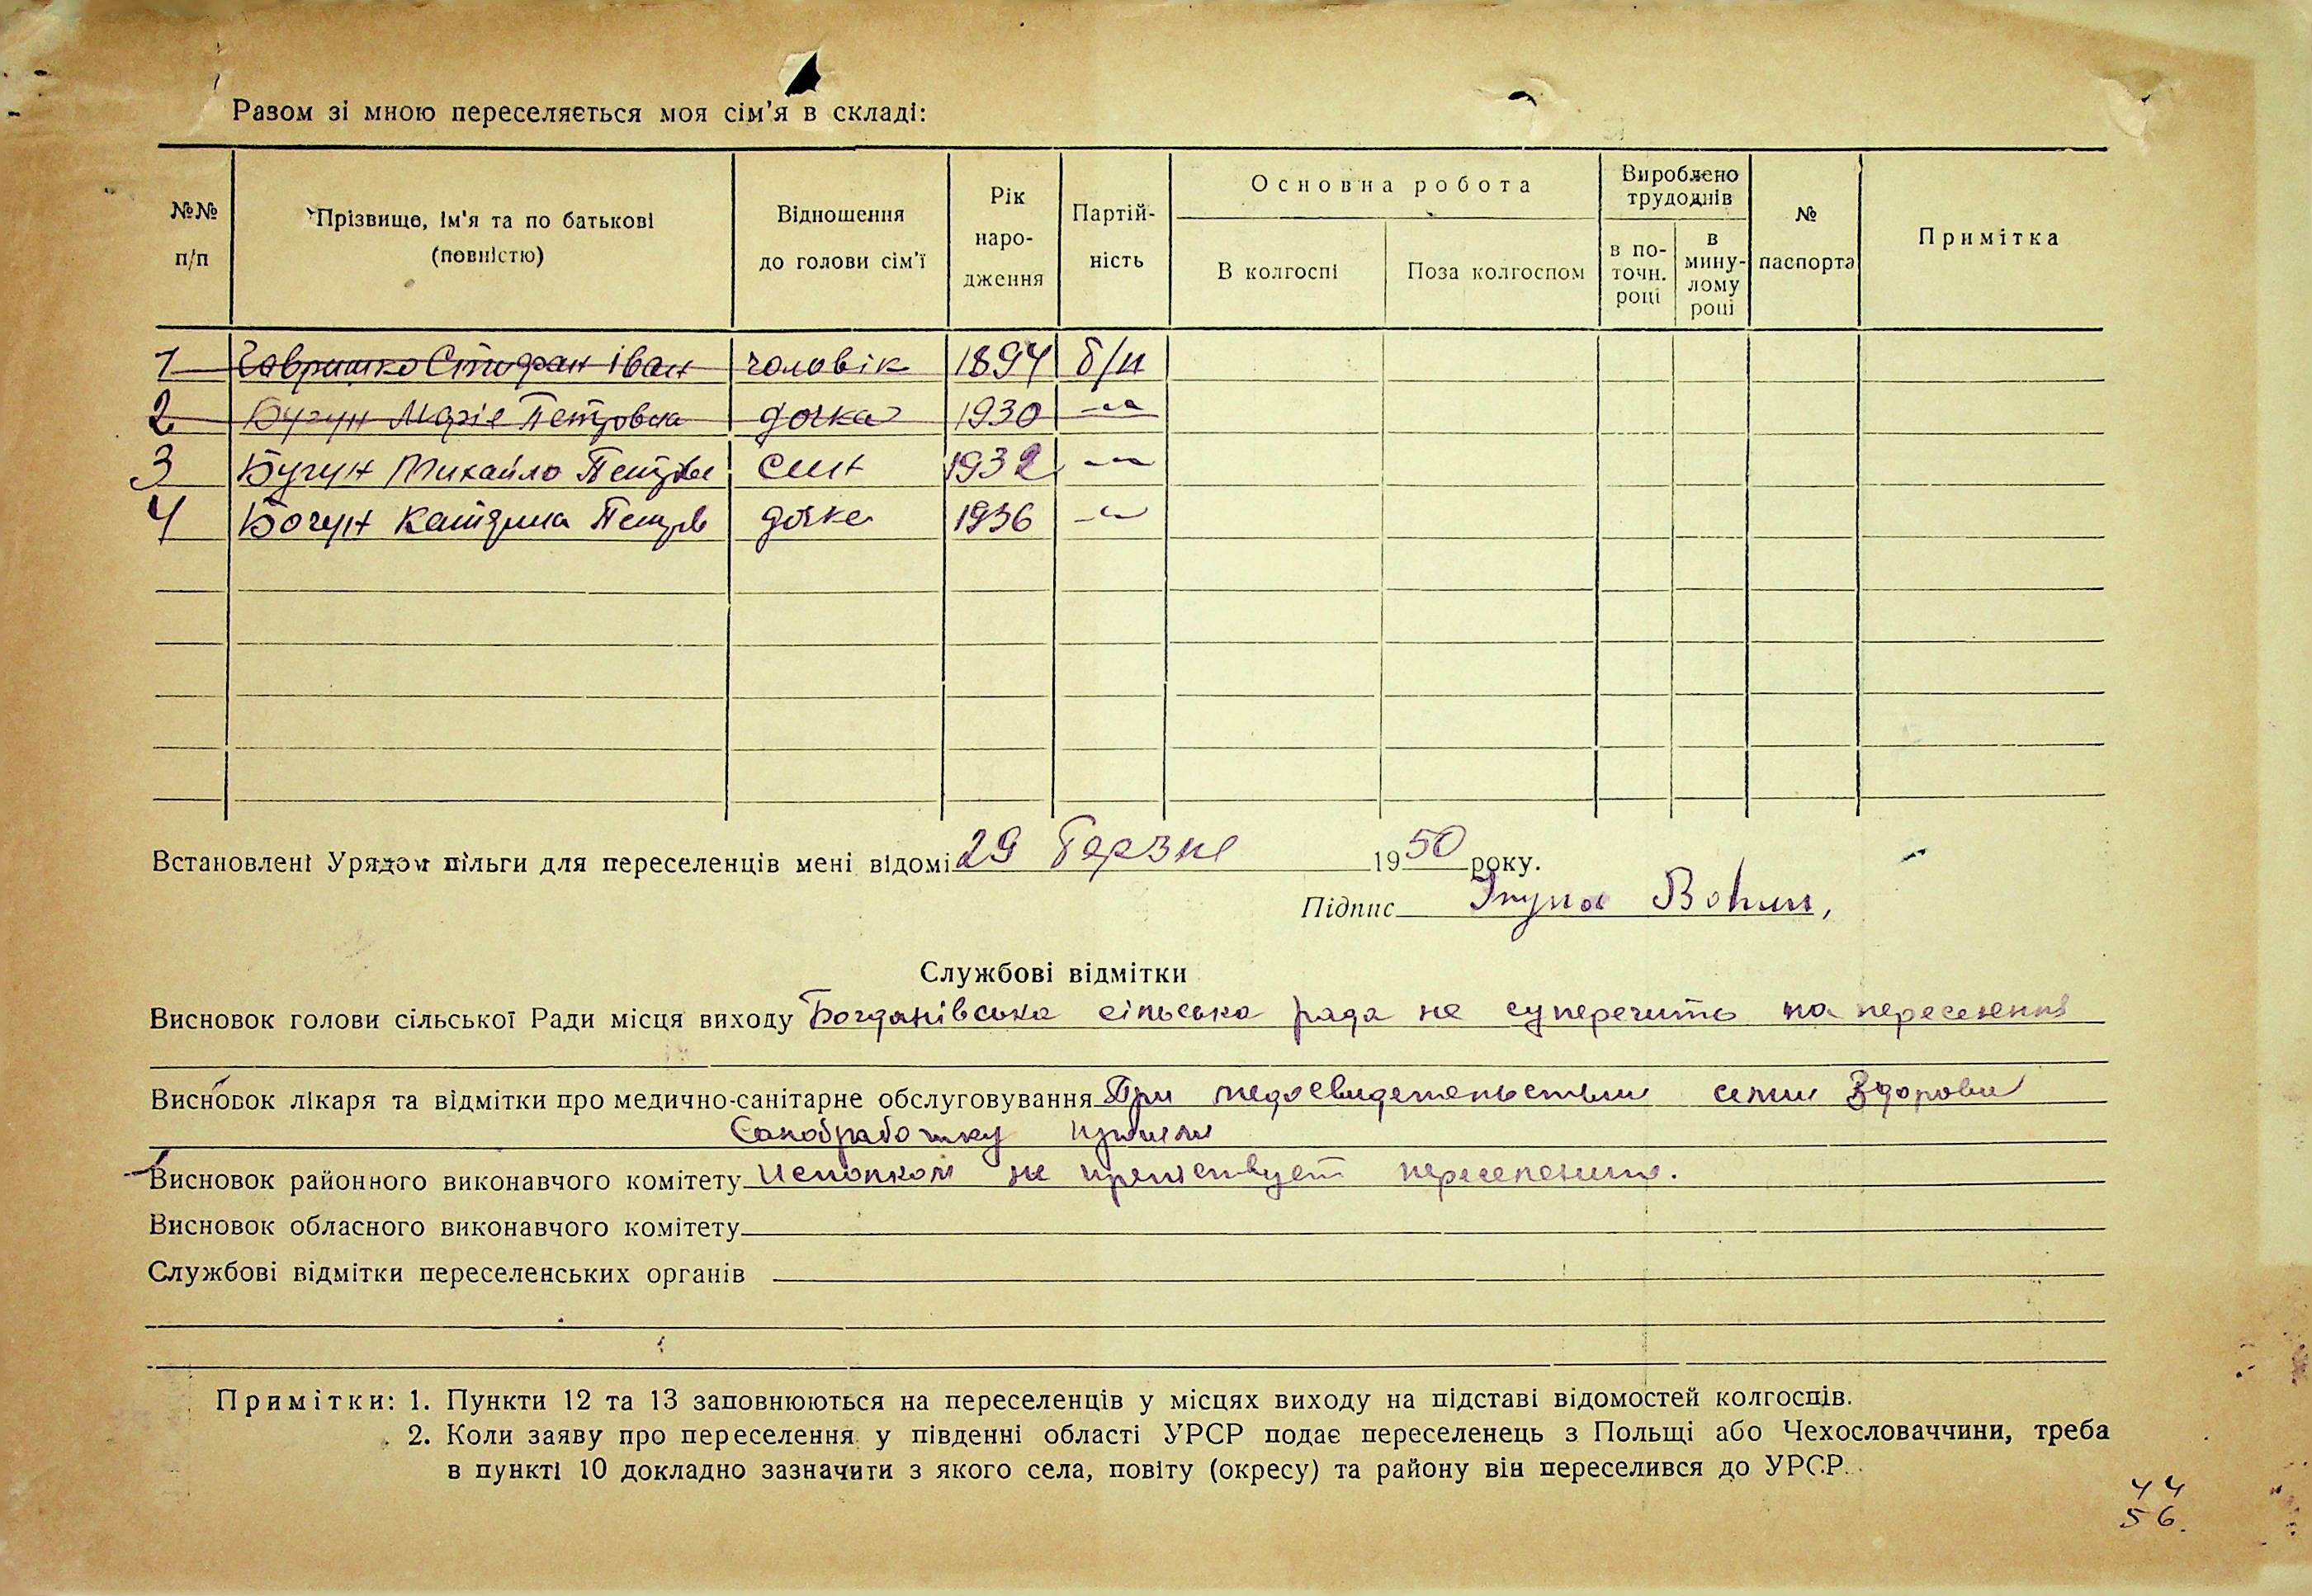 Разом зі мною переселяється моя сім'я в складі:
№№ п/п
Прізвище, ім'я та по батькові (повністю)
Відношення до голови сім'ї
Рік народження
Партійність
Основна робота
В колгоспі
Поза колгоспом
Вироблено трудоднів
в поточн. році
в минулому році
№ паспорта
Примітка
1 Гавришко Стифан Іван чоловік 1894 б/п
2 Бугун Марія Петровна дочка 1930 –"–
3 Бугун Михайло Петров син 1932 –"–
4 Богун Катерина Петров дочка 1936 –"–
Встановлені Урядом пільги для переселенців мені відомі 29 Березне 1950 року.
Підпис
Службові відмітки
Висновок голови сільської Ради місця виходу Богданівська сільська рада не суперечить на переселення
Висновок лікаря та відмітки про медично-санітарне обслуговування При медосвидетельствии семьи Здоровы
Санобработку прошли
Висновок районного виконавчого комітету Исполком не препятствует переселению.
Висновок обласного виконавчого комітету
Службові відмітки переселенських органів
Примітки: 1. Пункти 12 та 13 заповнюються на переселенців у місцях виходу на підставі відомостей колгоспів.
2. Коли заяву про переселення у південні області УРСР подає переселенець з Польщі або Чехословаччини, треба
в пункті 10 докладно зазначити з якого села, повіту (окресу) та району він переселився до УРСР.
44
56.